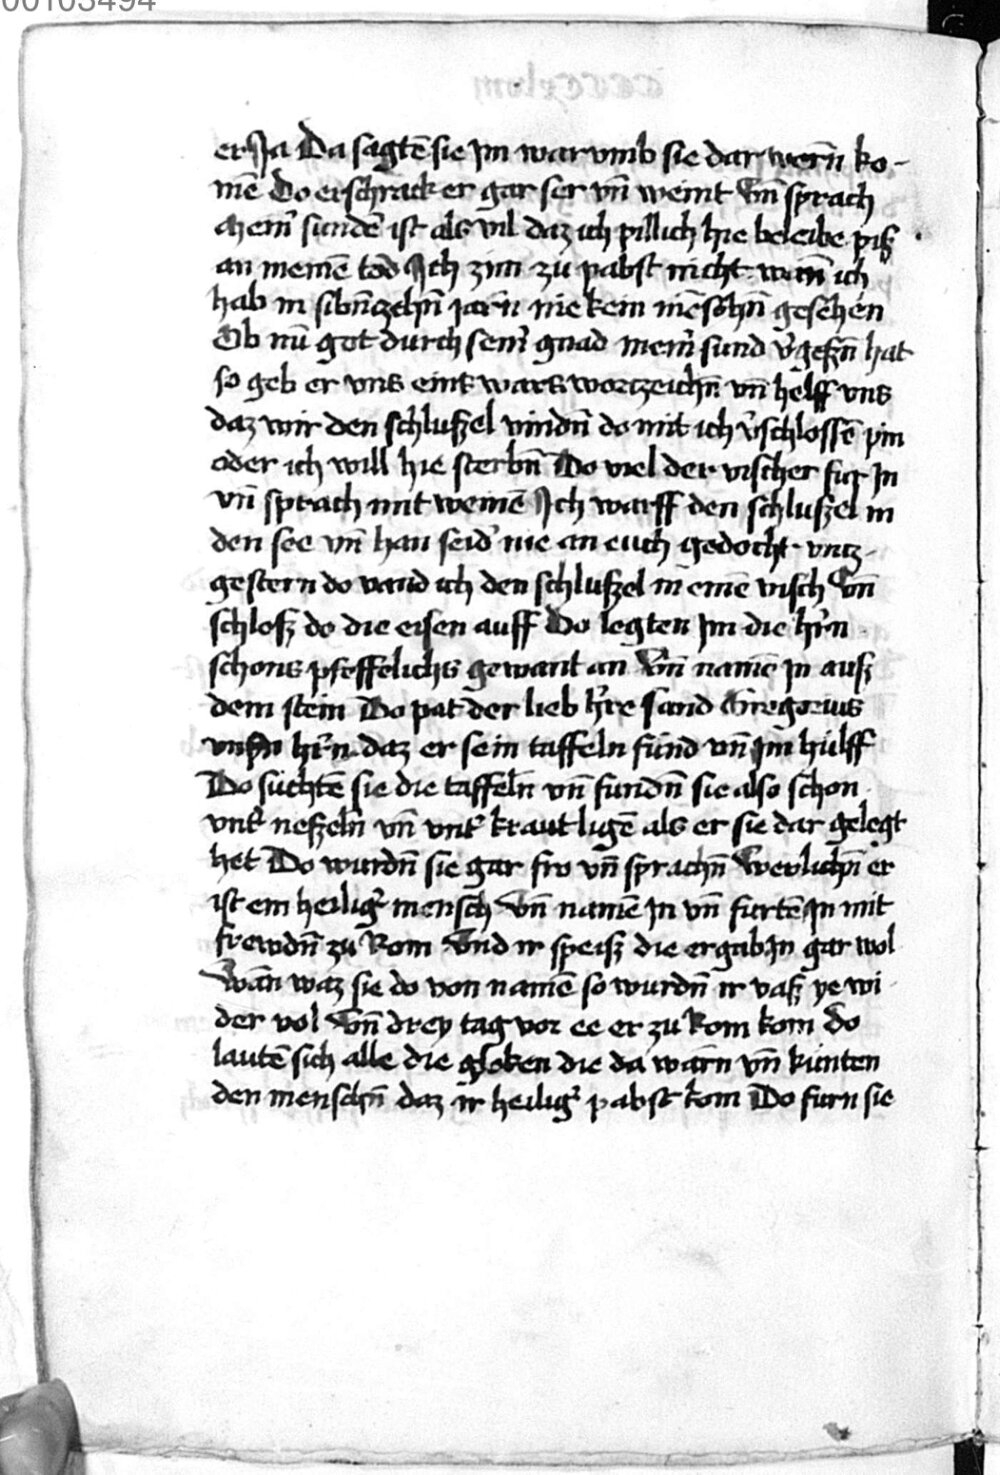 00103494
er Ja Da sagtē sie Jm war vmb sie dar wern̄ ko-
mē Do erschrack er gar ser vn̄ weint Vn̄ sprach
Mein̕ sundē ist als vil daz ich pillich hie beleibe piß
an meinē tod Jch zim zu pabst nicht wan̄ ich
hab in sibn̄zehn̄ jarn̄ nie kein mēschn̄ gesehen
Ob nū got durch sein̕ gnad mein̕ sund v̕geßn̄ hat
so geb er vns eins wars wortzeichn̄ vn̄ helff vns
daz wir den schlußel vindn̄ do mit ich v̕schlossē pin
oder ich will hie sterbn̄ Do viel der vischer fur Jn
vn̄ sprach mit weinē Jch warff den schlußel in
den see vn̄ han seid̕ nie an euch gedocht vntz-
gestern do vand ich den schlußel in einē visch Vn̄
schloß do die eisen auff Do legten Jm die hr̕n
schons pfeffelichs gewant an Vn̄ namē Jn auß
dem stein Do pat der lieb hr̕e sand Gregorius
vnsn̄ hr̕n daz er sein taffeln fund vn̄ Jm hulff
Do suchtē sie die taffeln̄ vn̄ fundn̄ sie also schon
vnt̕ neßeln̄ vn̄ vnt̕ kraut ligē als er sie dar gelegt
het Do wurdn̄ sie gar fro vn̄ sprachn̄ Werlichn̄ er
ist ein heilig̕ mensch Vn̄ namē Jn vn̄ furtē Jn mit
frewdn̄ zu Rom Vnd ir speiß die ergab Jn gar wol
Wan̄ waz sie do von namē so wurdn̄ ir vaß ye wi
der vol Vn̄ drey tag vor ee er zu Rom kom Do
lautē sich alle die gloken die da warn̄ vn̄ kunten
den menschn̄ daz ir heilig̕ pabst kom Do furn sie